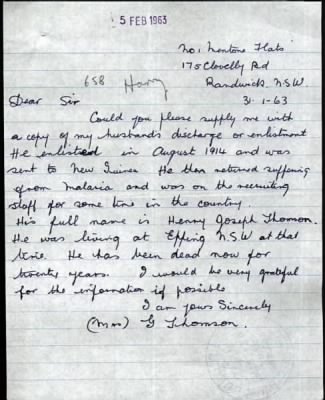 5 FEB 1963
No 1 Mentone Flats
175 Clovelly Rd
Randwick. N.S.W.
31-1-63
658 Harry
Dear Sir
Could you please supply me with
a copy of my husbands discharge or enlistment
He enlisted in August 1914 and was
sent to New Guinea. He then returned suffering
from Malaria and was on the recruiting
staff for some time in the country.
His full name is Henry Joseph Thomson.
He was living at Epping N.S.W at that
time. He has been dead now for
twenty years. I would be very grateful
for the information if possible
I am yours Sincerely
(Mrs) G Thomson.